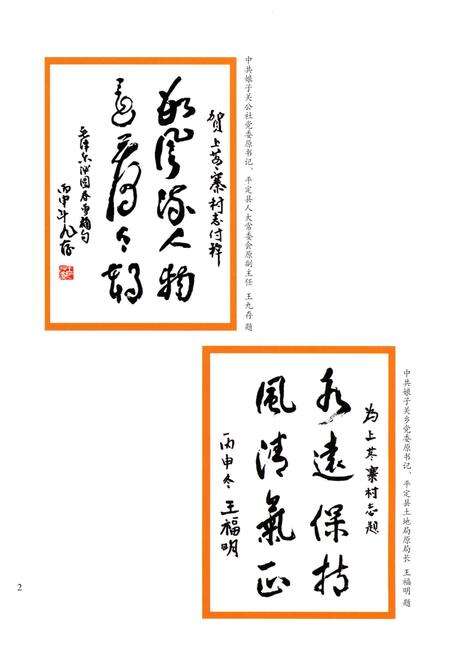 贺上董寨村志付梓
数風流人物
还看今朝
毛泽东沁园春雪词句
丙申年九存
中共娘子关公社党委原书记、平定县人大常委会原副主任 王九存 题
为上董寨村志题
永遠保持
風清氣正
丙申冬 王福明
中共娘子关乡党委原书记、平定县土地局原局长 王福明 题
2